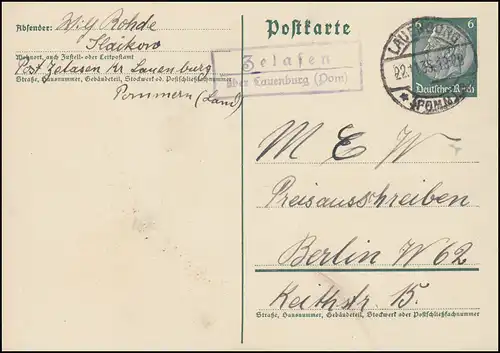 Absender: Wilh Rohde
Slaikow
Wohnort, auch Zustell- oder Leitpostamt
Post Zelasen Kr Lauenburg
Straße, Hausnummer, Gebäudeteil, Stockwerk od. Postschließfachnummer
Pommern (Land)
Postkarte
Zelasen
über Lauenburg (Pom)
LAUENBURG
(POMM)
6
Deutsches Reich
M E W
Preisausschreiben
Berlin W 62
Keithstr. 15.
Straße, Hausnummer, Gebäudeteil, Stockwerk oder Postschließfachnummer